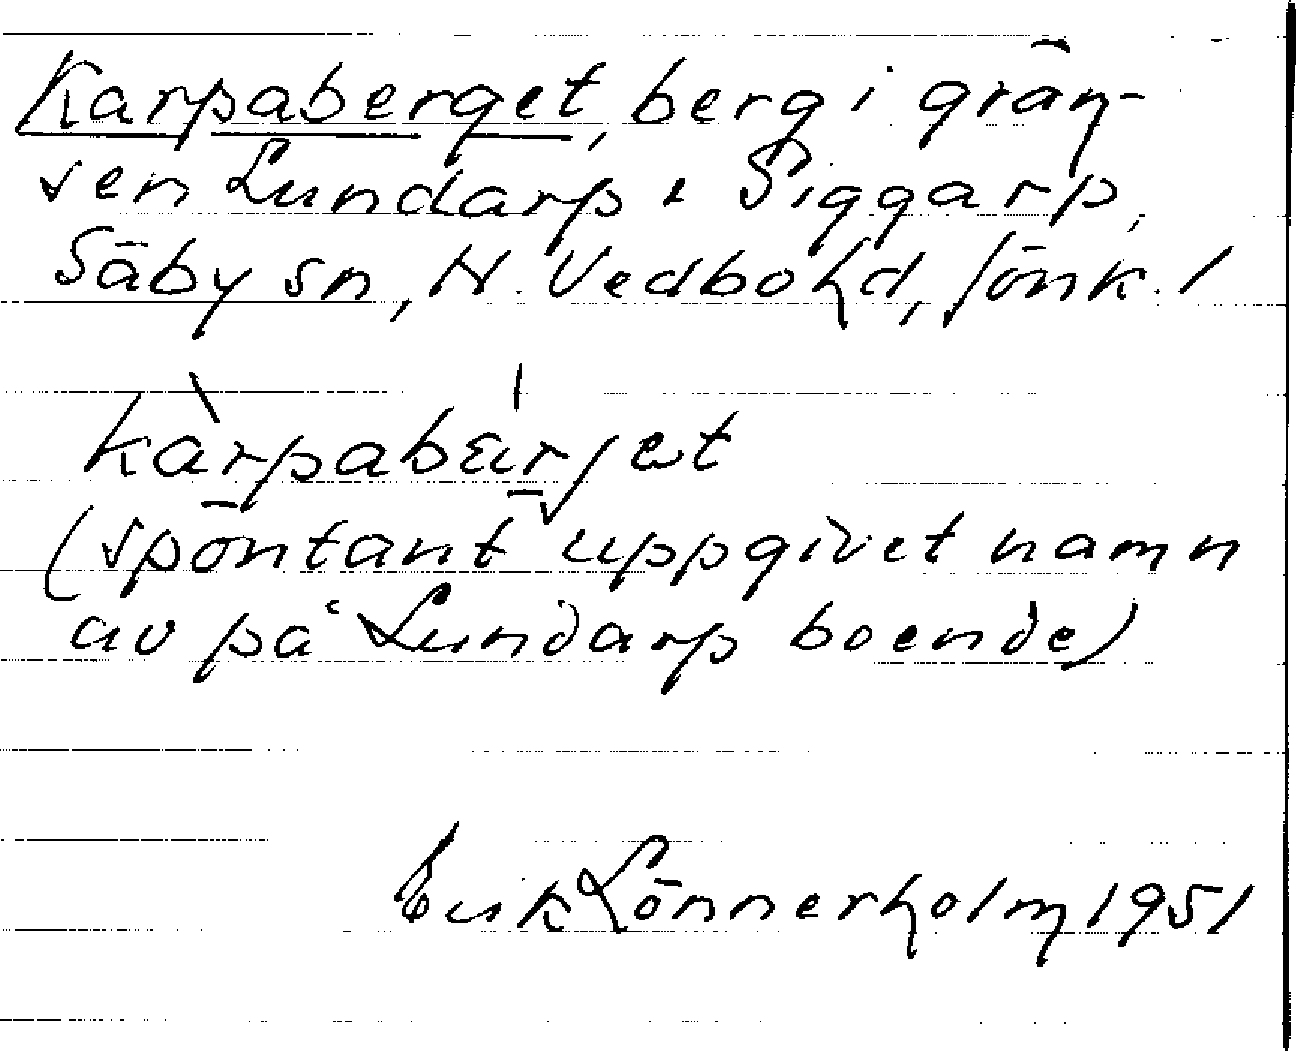 Karpaberget, berg i grän-
sen Lundarp & Siggarp,
Säby sn, N. Vedbohd, Jönk. l
kàrpabærjet
(spontant uppgivet namn
av på Lundarp boende)
Erik Lönnerholm 1951